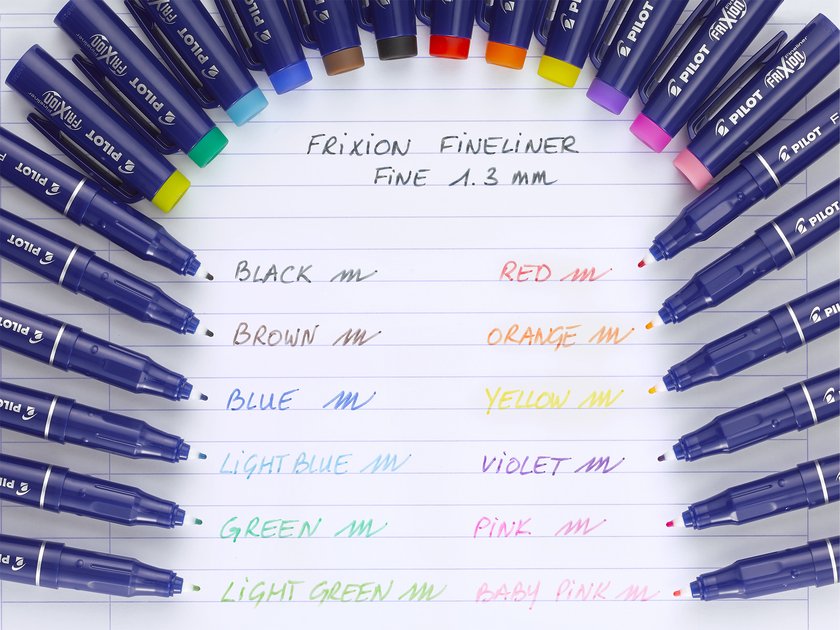 PILOT
FRiXiON
PILOT
FRiXiON
Fineliner
PILOT
PILOT
PILOT
PILOT
PILOT
PILOT
PILOT
FRiXiON
PILOT
FRiXiON
Fineliner
FRIXION FINELINER
FINE 1.3 mm
PILOT
PILOT
BLACK
RED
PILOT
PILOT
BROWN
ORANGE
PILOT
BLUE
YELLOW
PILOT
LIGHT BLUE
VIOLET
PILOT
GREEN
PINK
PILOT
LIGHT GREEN
BABY PINK